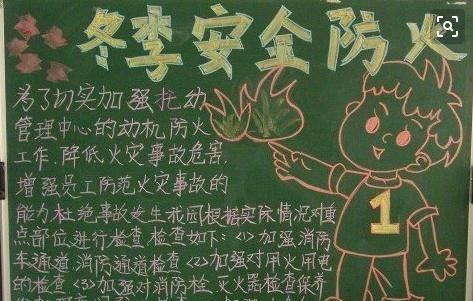 冬季安全防火
为了切实加强托幼
管理中心的动机防火
工作,降低火灾事故危害,
增强员工防范火灾事故的
能力杜绝事故发生我园根据实际情况对重
点部位进行检查,检查如下:<1>加强消防
车通道,消防通道检查<2>加强对用火用电
的检查<3>加强对消防栓,灭火器检查保养
1